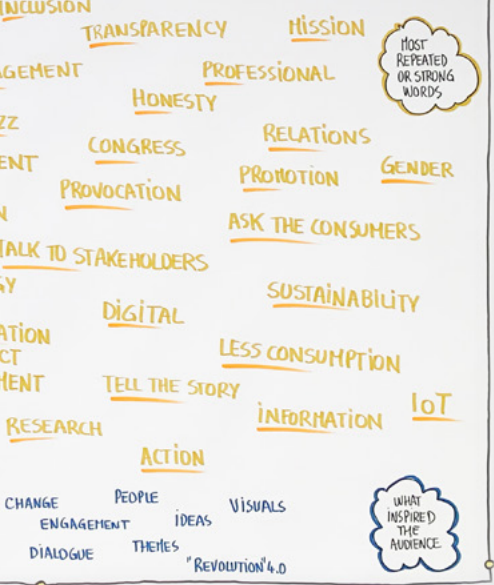 INCLUSION
TRANSPARENCY
MISSION
MOST
REPEATED
OR STRONG
WORDS
GEMENT
PROFESSIONAL
HONESTY
ZZ
RELATIONS
CONGRESS
ENT
PROMOTION
GENDER
PROVOCATION
N
ASK THE CONSUMERS
TALK TO STAKEHOLDERS
GY
SUSTAINABILITY
DIGITAL
ATION
CT
LESS CONSUMPTION
MENT
TELL THE STORY
IoT
INFORMATION
RESEARCH
ACTION
CHANGE
PEOPLE
VISUALS
ENGAGEMENT
IDEAS
DIALOGUE
THEMES
"REVOLUTION" 4.0
WHAT
INSPIRED
THE
AUDIENCE